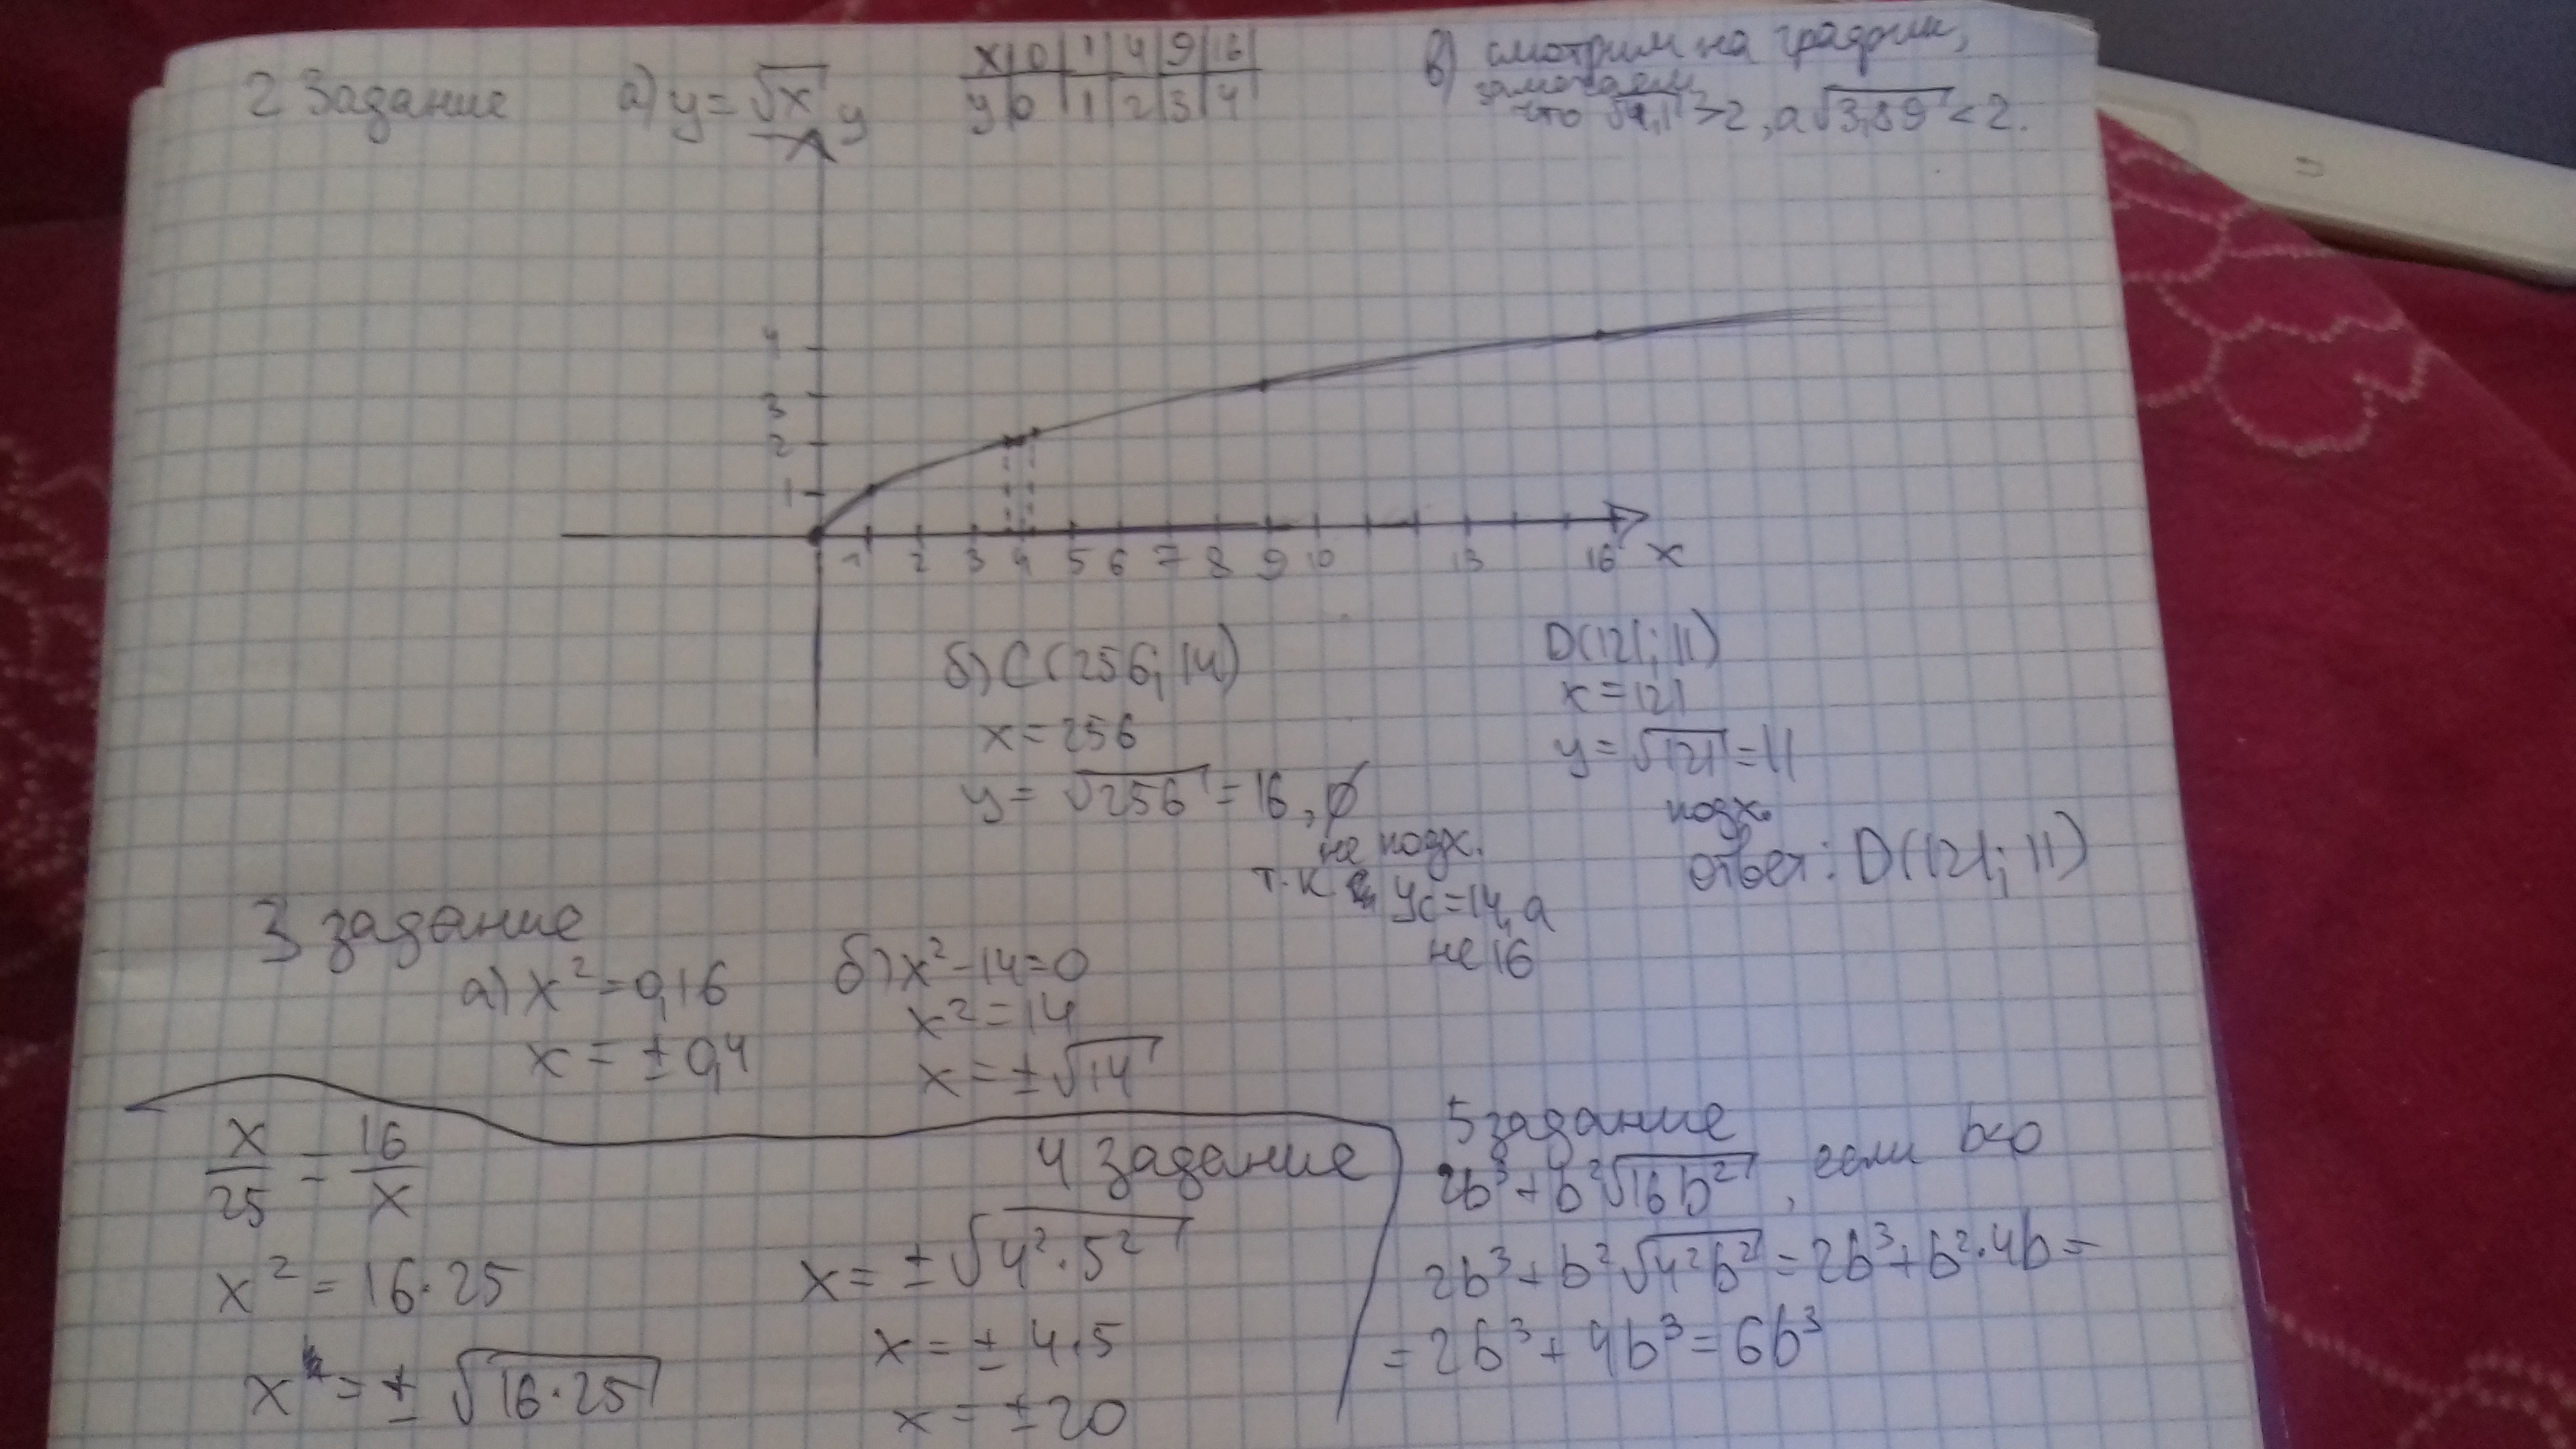 2 Задание
а) y = √x
x 0 1 4 9 16
y 0 1 2 3 4
в) смотрим на график,
замечаем
что √4,1 > 2, а √3,89 < 2.
y
4
3
2
1
1 2 3 4 5 6 7 8 9 10 13 16 x
б) C(256; 14)
x = 256
y = √256 = 16, ∅
не подх.
т.к. yc = 14, а
не 16
D(121; 11)
x = 121
y = √121 = 11
подх.
ответ: D(121; 11)
3 задание
а) x² = 0,16
x = ± 0,4
б) x² - 14 = 0
x² = 14
x = ± √14
4 задание
x/25 = 16/x
x² = 16 · 25
x = ± √16 · 25
x = ± √4² · 5²
x = ± 4 · 5
x = ± 20
5 задание
2b³ + b²√16b², если b<0
2b³ + b²√4²b² = 2b³ + b² · 4b =
= 2b³ + 4b³ = 6b³